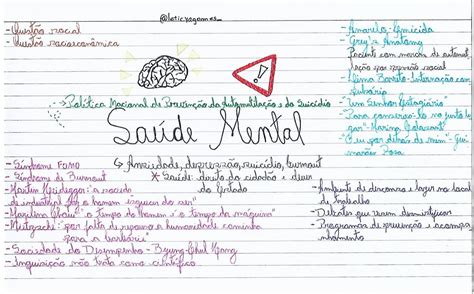 - Questão racial
- Questão socioeconômica
- Amarelo - Emicida
- Grey's Anatomy
Paciente com marcas de automuti
lação por repressão social
- Lima Barreto - Internação com
pulsória
- "Um Senhor Estagiário"
- Política Nacional de Prevenção da Automutilação e do Suicídio
Saúde Mental
↳ Ansiedade, depressão, suicídio, burnout
* Saúde: direito do cidadão e dever
do Estado
- Síndrome FOMO
- Síndrome de Burnout
- Martin Heidegger: "a sociedade
industrial faz o homem esquecer do ser"
- Marilena Chauí: "o tempo do homem é o tempo da máquina"
- Nietzsche: por falta de repouso a humanidade caminha
para a barbárie
- Sociedade do Desempenho - Byung-Chul Hang
- Inquisição não trata como científico
- Ambiente de descanso e lazer no local
de trabalho
- Debates que visem desmistificar
- Programas de prevenção e acompa
nhamento